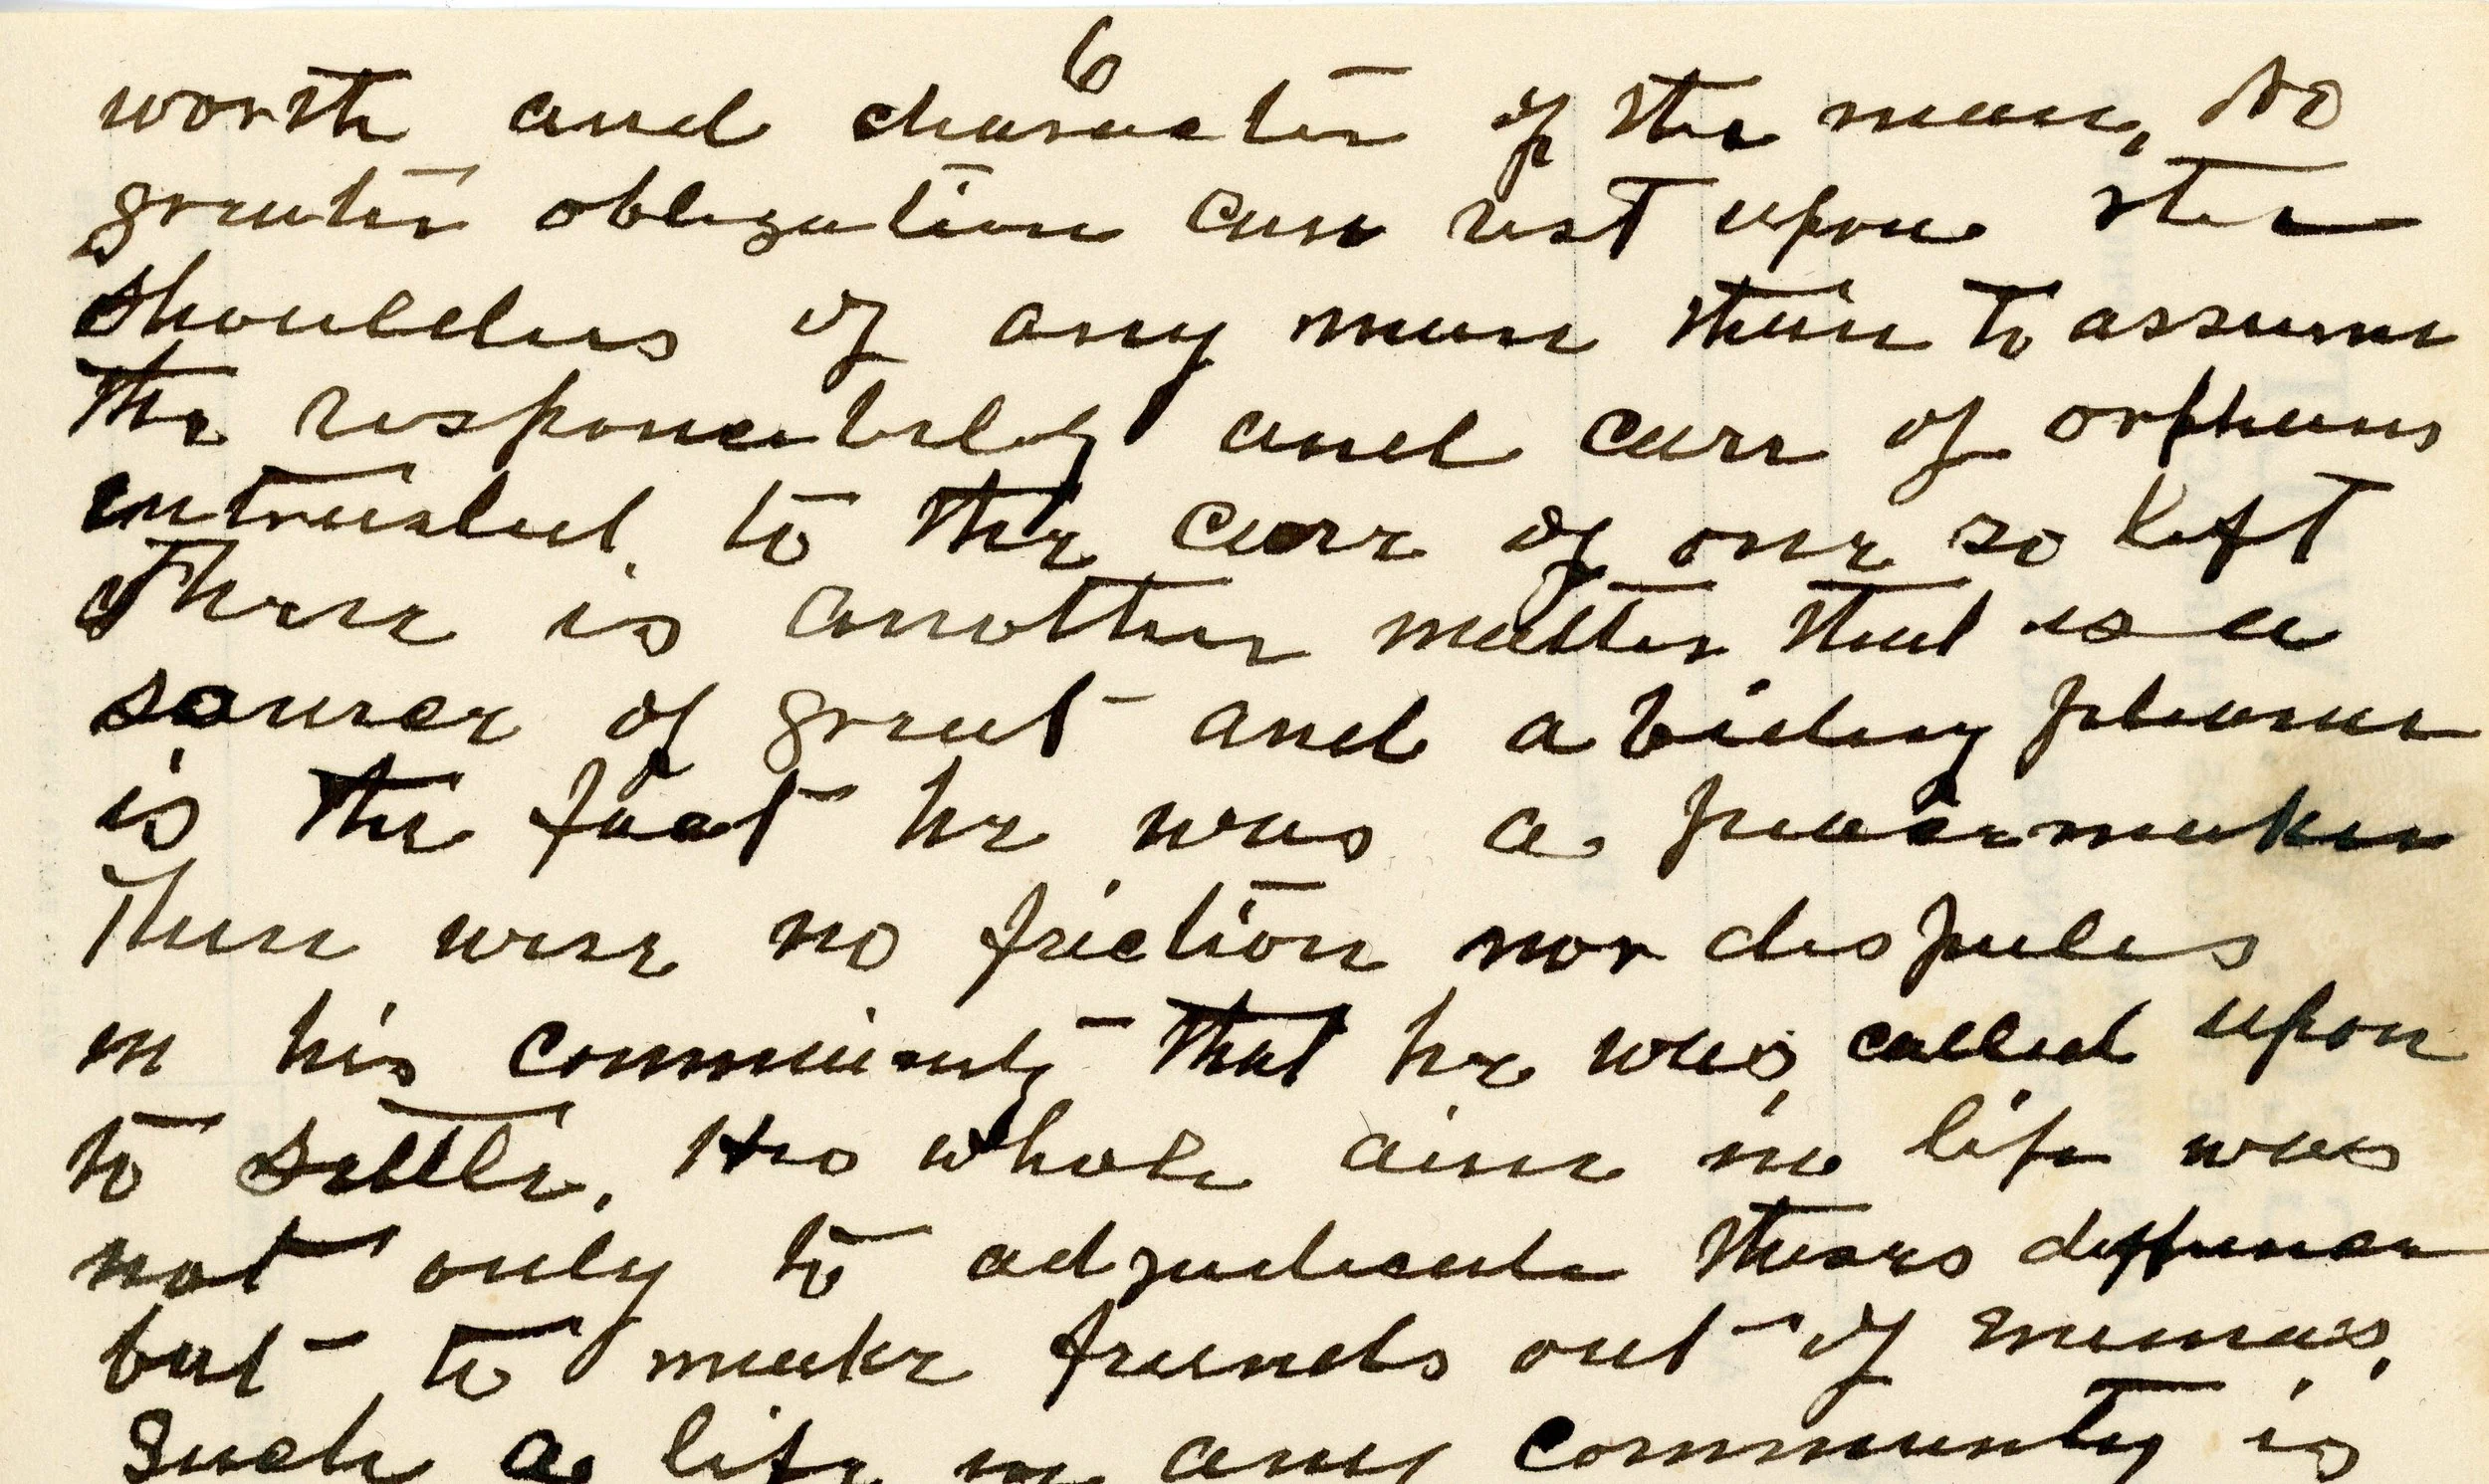 6
worth and character of the man, No
greater obligation can rest upon the
shoulders of any man than to assume
the responsibility and care of orphans
intrusted to the care of one so left
There is another matter that is a
source of great and abiding pleasure
is the fact he was a peacemaker
There were no friction nor disputes
in his community that he was called upon
to settle. His whole aim in life was
not only to adjudicate these difference
but to make friends out of enemies.
Such a life in any community is